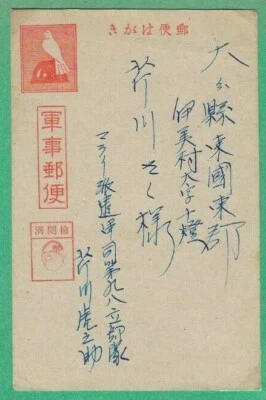 郵便はがき
軍事郵便
検閲済
大分縣東國東郡
伊美村大字千燈
芹川さく様
マライ派遣軍司第九八立部隊
芹川虎之助